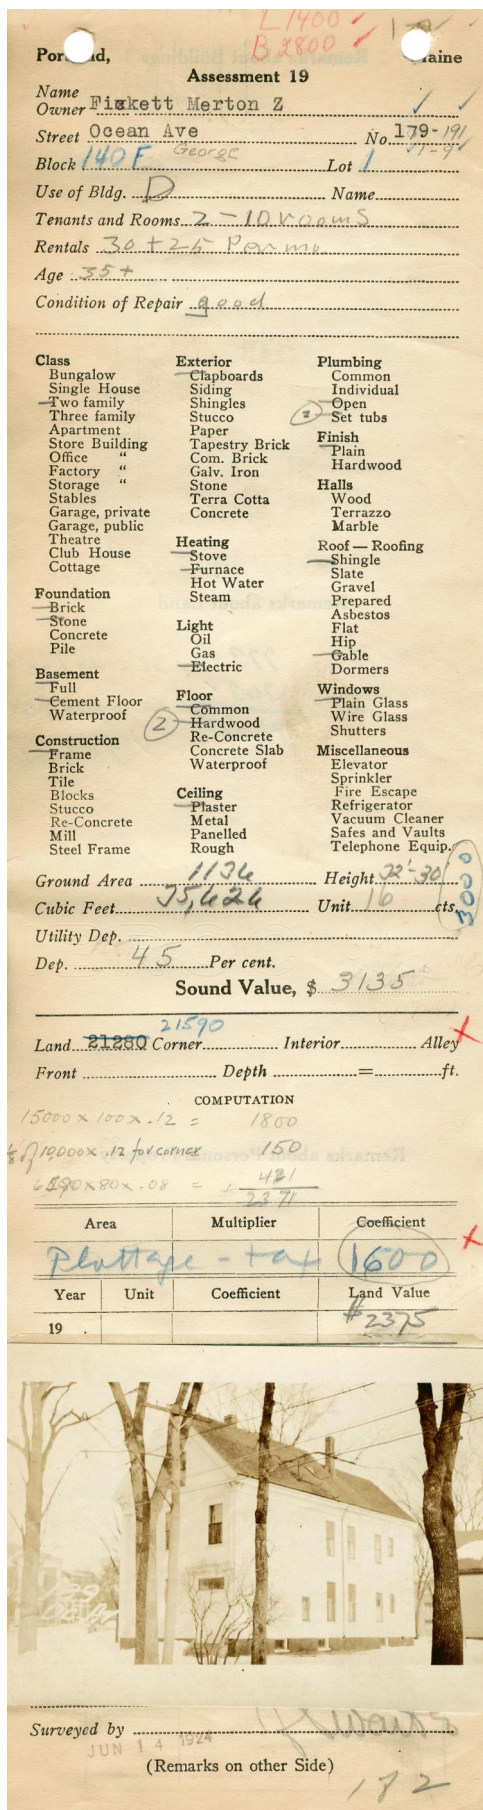 L 1400
B 2800
Portland, Maine
Assessment 19
Name
Owner Fickett Merton Z
Street Ocean Ave No. 179-191
George 1-9
Block 140 F Lot 1
Use of Bldg. D Name
Tenants and Rooms 2 - 10 rooms
Rentals 30 + 25 Per mo
Age 35+
Condition of Repair good
Class
Bungalow
Single House
Two family
Three family
Apartment
Store Building
Office "
Factory "
Storage "
Stables
Garage, private
Garage, public
Theatre
Club House
Cottage
Foundation
Brick
Stone
Concrete
Pile
Basement
Full
Cement Floor
Waterproof
Construction
Frame
Brick
Tile
Blocks
Stucco
Re-Concrete
Mill
Steel Frame
Exterior
Clapboards
Siding
Shingles
Stucco
Paper
Tapestry Brick
Com. Brick
Galv. Iron
Stone
Terra Cotta
Concrete
Heating
Stove
Furnace
Hot Water
Steam
Light
Oil
Gas
Electric
Floor
Common
2 Hardwood
Re-Concrete
Concrete Slab
Waterproof
Ceiling
Plaster
Metal
Panelled
Rough
Plumbing
Common
Individual
Open
2 Set tubs
Finish
Plain
Hardwood
Halls
Wood
Terrazzo
Marble
Roof — Roofing
Shingle
Slate
Gravel
Prepared
Asbestos
Flat
Hip
Gable
Dormers
Windows
Plain Glass
Wire Glass
Shutters
Miscellaneous
Elevator
Sprinkler
Fire Escape
Refrigerator
Vacuum Cleaner
Safes and Vaults
Telephone Equip.
Ground Area 1136 Height 32'-30
Cubic Feet 35,626 Unit 16 cts.
3000
Utility Dep.
Dep. 45 Per cent.
Sound Value, $ 3135
21590
Land 21280 Corner Interior Alley
Front Depth = ft.
COMPUTATION
15000 x 100 x .12 = 1800
1/8 of 10,000 x .12 for corner 150
x 80 x .08 = 421
2371
Area Multiplier Coefficient
Plottage - tax 1600
Year Unit Coefficient Land Value
19 $2375
179
Surveyed by
JUN 14 1924
(Remarks on other Side)
182